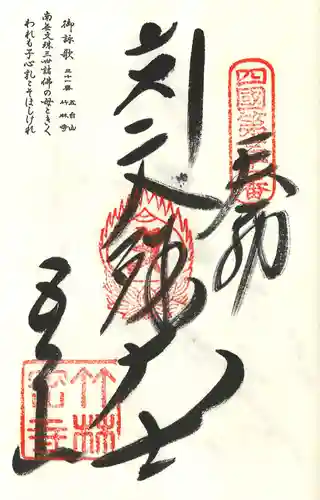 四國第三十一番
奉納
文殊大士
五台山
竹林
密寺
御詠歌 三十一番 五台山 竹林寺
南無文殊三世諸佛の母ときく
われも子心乳こそほしけれ